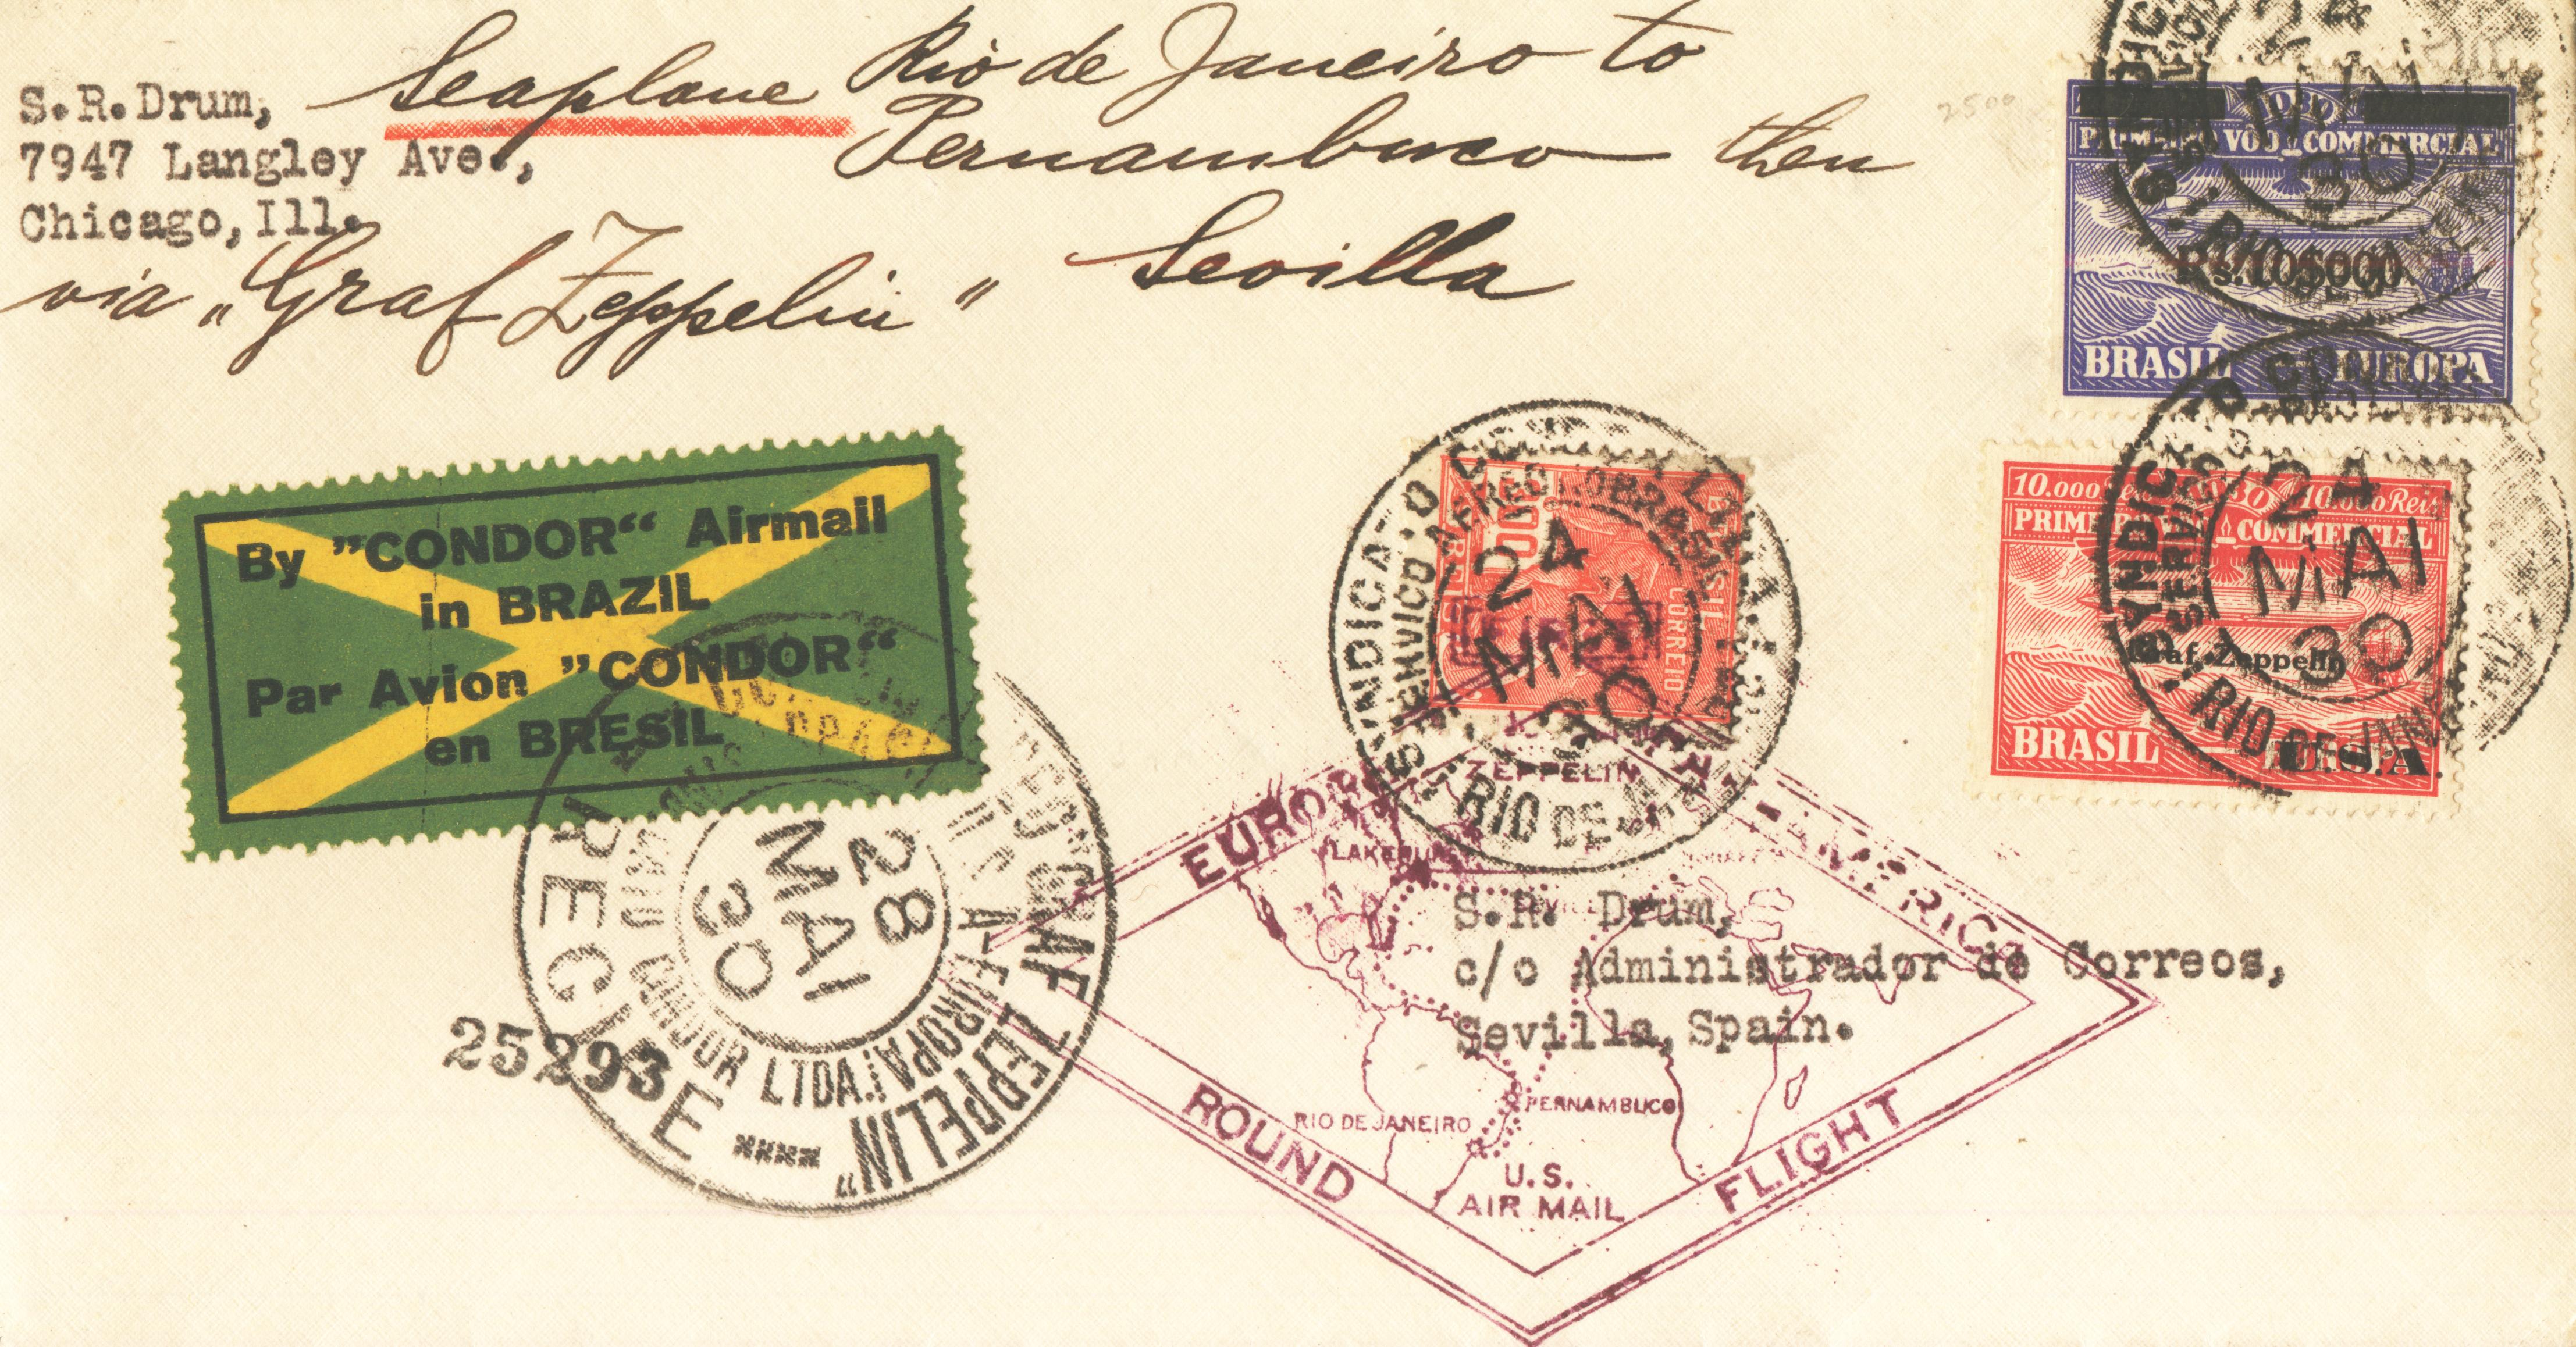 S.R.Drum,
7947 Langley Ave.,
Chicago, Ill.
Seaplane Rio de Janeiro to
Pernambuco then
via „Graf Zeppelin" Sevilla
2500
1930
PRIMEIRO VÔO COMMERCIAL
Rs.10$000
BRASIL EUROPA
24
MAI
30
RIO DE JANEIRO
10.000 Reis 1930 10.000 Reis
PRIMEIRO VÔO COMMERCIAL
Graf Zeppelin
BRASIL U.S.A.
SYNDICATO CONDOR
SERVIÇO
24
MAI
30
RIO DE JANEIRO
BRASIL
CORREIO
SYNDICATO CONDOR LTDA
SERVIÇO AEREO
24
MAI
30
RIO DE JANEIRO
By "CONDOR" Airmail
in BRAZIL
Par Avion "CONDOR"
en BRESIL
GRAF ZEPPELIN"
A EUROPA
CONDOR LTDA.
28
MAI
30
RECIFE
25293
EUROPE PAN-AMERICA
ZEPPELIN
LAKEHURST
SEVILLE
S.R. Drum,
c/o Administrador de Correos,
Sevilla, Spain.
RIO DE JANEIRO
PERNAMBUCO
U.S.
AIR MAIL
ROUND FLIGHT